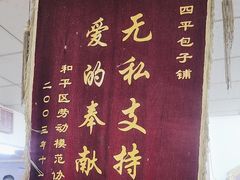 四平包子铺
无私支持
爱的奉献
和平区劳动模范协
二〇〇三年十